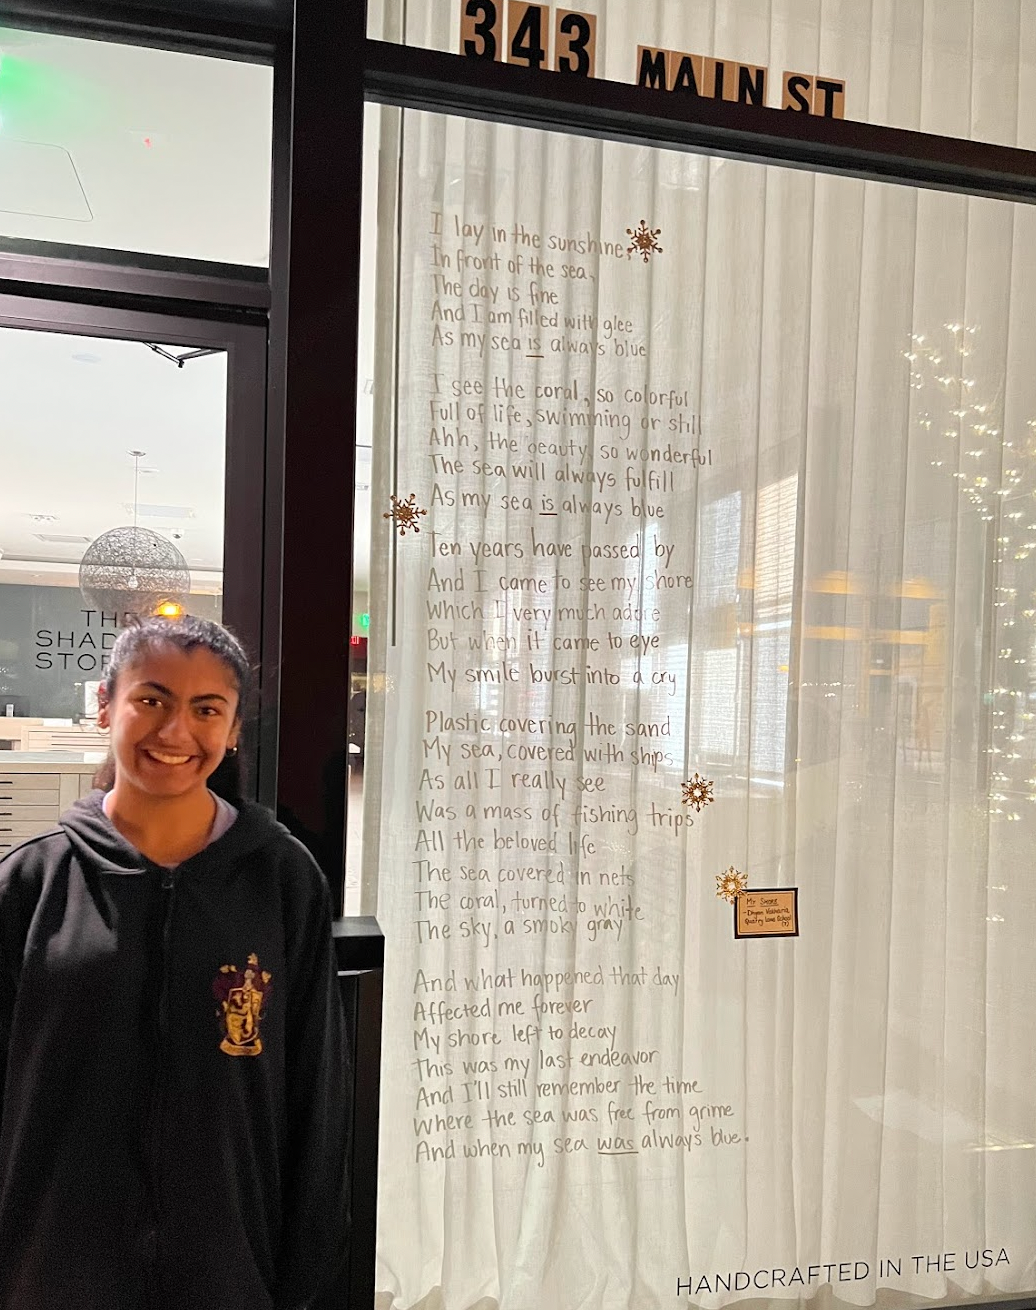 343 MAIN ST
I lay in the sunshine,
In front of the sea,
The day is fine
And I am filled with glee
As my sea is always blue
I see the coral, so colorful
Full of life, swimming or still
Ahh, the beauty, so wonderful
The sea will always fulfill
As my sea is always blue
Ten years have passed by
And I came to see my shore
Which I very much adore
But when it came to eye
My smile burst into a cry
Plastic covering the sand
My sea, covered with ships
As all I really see
Was a mass of fishing trips
All the beloved life
The sea covered in nets
The coral, turned to white
The sky, a smoky gray
And what happened that day
Affected me forever
My shore left to decay
This was my last endeavor
And I'll still remember the time
Where the sea was free from grime
And when my sea was always blue.
THE
SHAD
STO
My Shore
Quarry Lane School
(7)
HANDCRAFTED IN THE USA